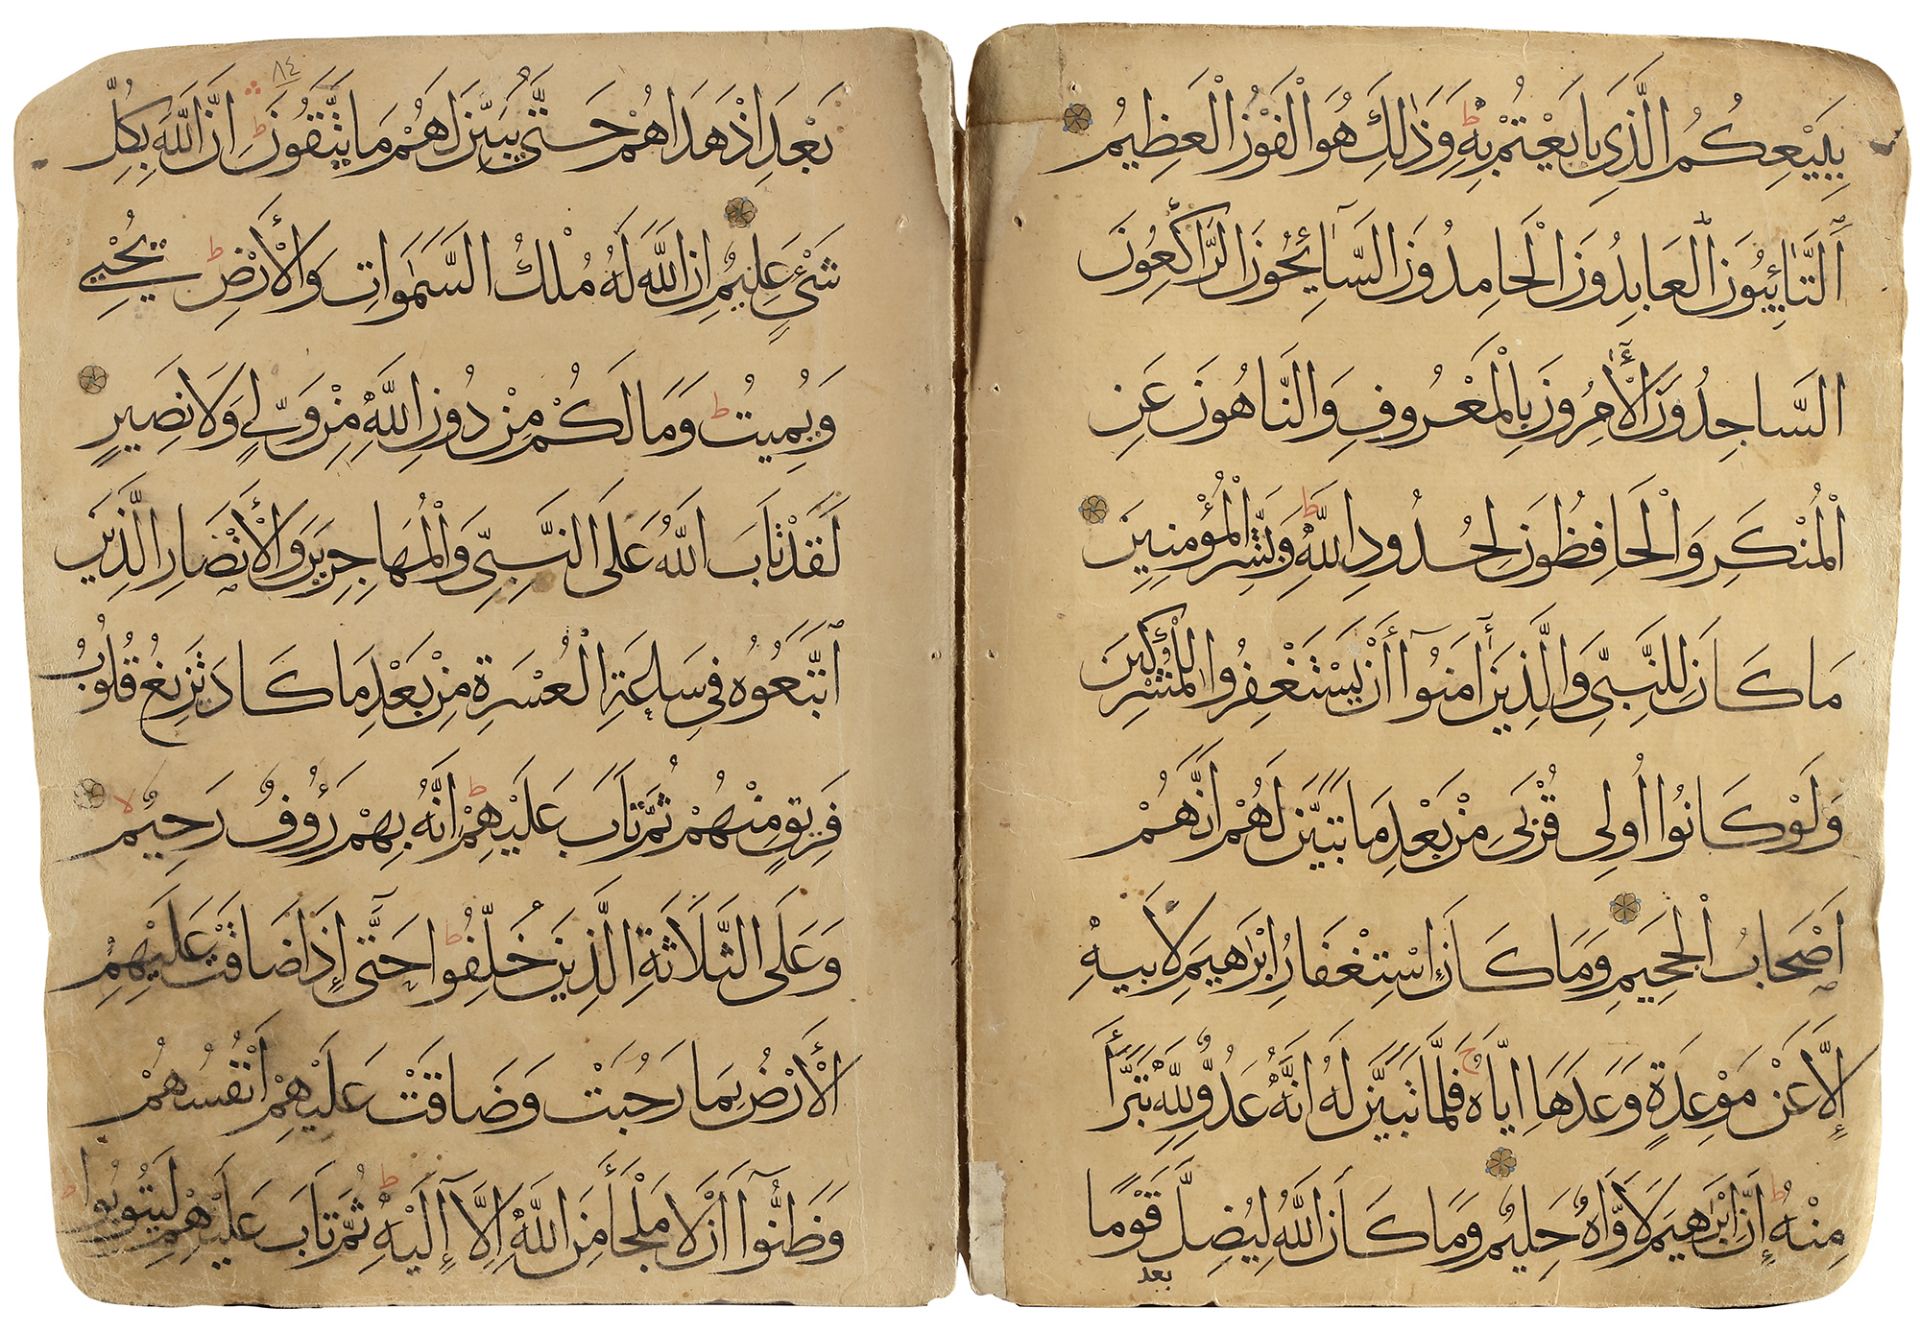 بِبَيْعِكُمُ الَّذِي بَايَعْتُمْ بِهِ ط وَذَٰلِكَ هُوَ الْفَوْزُ الْعَظِيمُ
اَلتَّائِبُونَ الْعَابِدُونَ الْحَامِدُونَ السَّائِحُونَ الرَّاكِعُونَ
السَّاجِدُونَ الْأٰمِرُونَ بِالْمَعْرُوفِ وَالنَّاهُونَ عَنِ
الْمُنْكَرِ وَالْحَافِظُونَ لِحُدُودِ اللَّهِ ط وَبَشِّرِ الْمُؤْمِنِينَ
مَا كَانَ لِلنَّبِيِّ وَالَّذِينَ أٰمَنُوٓا أَنْ يَسْتَغْفِرُوا لِلْمُشْرِكِينَ
وَلَوْ كَانُوا أُولِي قُرْبَى مِنْ بَعْدِ مَا تَبَيَّنَ لَهُمْ اَنَّهُمْ
اَصْحَابُ الْجَحِيمِ وَمَا كَانَ اسْتِغْفَارُ اِبْرٰهِيمَ لِاَبِيهِ
إِلَّا عَنْ مَوْعِدَةٍ وَعَدَهَا اِيَّاهُ ج فَلَمَّا تَبَيَّنَ لَهُ اَنَّهُ عَدُوٌّ لِلَّهِ تَبَرَّأَ
مِنْهُ ط إِنَّ اِبْرٰهِيمَ لَاَوَّاهٌ حَلِيمٌ وَمَا كَانَ اللَّهُ لِيُضِلَّ قَوْمًا
بعد
٨٤
بَعْدَ اِذْ هَدَاهُمْ حَتَّى يُبَيِّنَ لَهُمْ مَا يَتَّقُونَ ط اِنَّ اللَّهَ بِكُلِّ
شَيْءٍ عَلِيمٌ اِنَّ اللَّهَ لَهُ مُلْكُ السَّمٰوَاتِ وَالْأَرْضِ ط يُحْيِي
وَيُمِيتُ ط وَمَا لَكُمْ مِنْ دُونِ اللَّهِ مِنْ وَلِيٍّ وَلَا نَصِيرٍ
لَقَدْ تَابَ اللَّهُ عَلَى النَّبِيِّ وَالْمُهَاجِرِينَ وَالْأَنْصَارِ الَّذِينَ
اتَّبَعُوهُ فِي سَاعَةِ الْعُسْرَةِ مِنْ بَعْدِ مَا كَادَ تَزِيغُ قُلُوبُ
فَرِيقٍ مِنْهُمْ ثُمَّ تَابَ عَلَيْهِمْ ط اِنَّهُ بِهِمْ رَؤُوفٌ رَحِيمٌ لا
وَعَلَى الثَّلَاثَةِ الَّذِينَ خُلِّفُوا ط حَتَّى إِذَا ضَاقَتْ عَلَيْهِمُ
الْأَرْضُ بِمَا رَحُبَتْ وَضَاقَتْ عَلَيْهِمْ اَنْفُسُهُمْ
وَظَنُّوٓا اَنْ لَا مَلْجَأَ مِنَ اللَّهِ اِلَّآ إِلَيْهِ ط ثُمَّ تَابَ عَلَيْهِمْ لِيَتُوبُوا ط